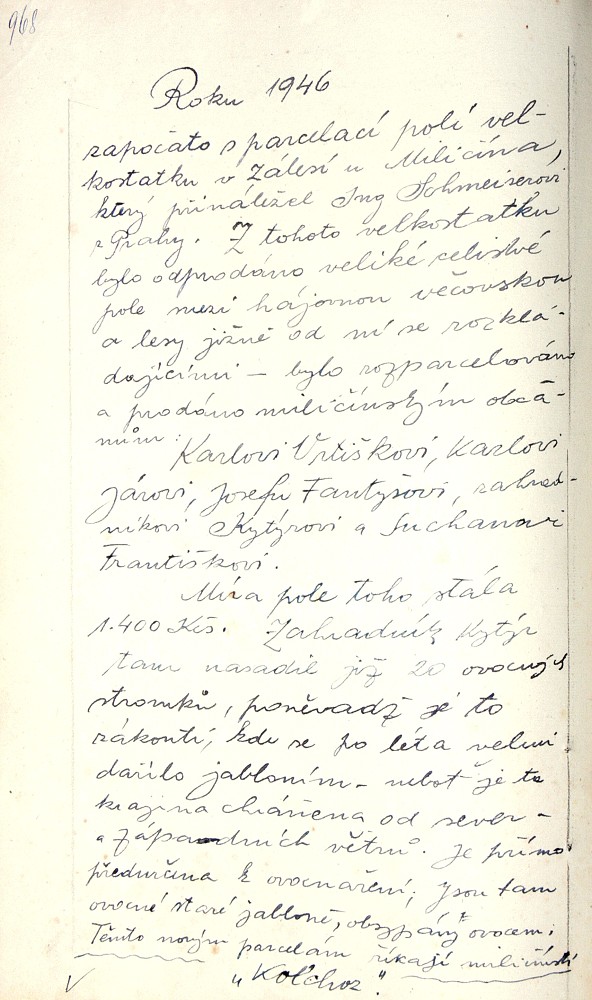 968
Roku 1946
započato s parcelací polí vel-
kostatku v Zálesí u Miličína,
který přináležel Ing Schmeiserovi
z Prahy. Z tohoto velkostatku
bylo odprodáno veliké celistvé
pole mezi hájovnou věčovskou
a lesy jižně od ní se rozklá-
dajícími – bylo rozparcelováno
a prodáno miličínským obča-
nům:
Karlovi Vrtiškovi, Karlovi
Járovi, Josefu Fantyšovi, zahrad-
níkovi Kytýrovi a Suchanovi
Františkovi.
Míra pole toho stála
1.400 Kčs. Zahradník Kytýr
tam nasadil již 20 ovocných
stromků, poněvadž je to
zákoutí, kde se po léta velmi
dařilo jabloním – neboť je ta
krajina chráněna od sever-
a západních větrů. Je přímo
předurčena k ovocnaření; jsou tam
ovocné staré jabloně, obsypány ovocem;
Těmto novým parcelám říkají miličínští
„Kolchoz".